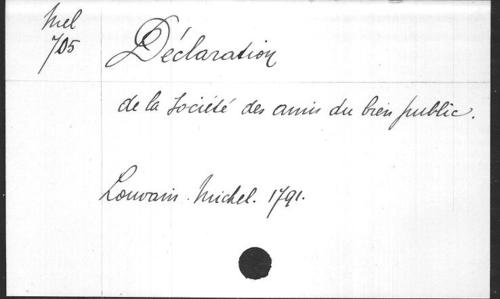 Mel
705
Déclaration
de la Société des amis du bien public.
Louvain. Michel. 1791.